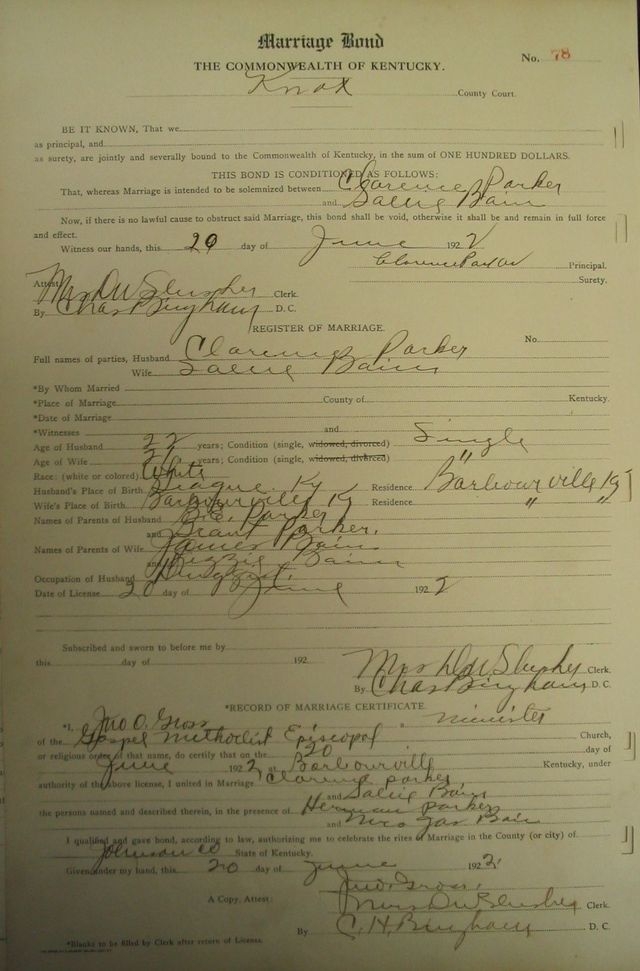 Marriage Bond
No. 78
THE COMMONWEALTH OF KENTUCKY.
Knox County Court.
BE IT KNOWN, That we
as principal, and
as surety, are jointly and severally bound to the Commonwealth of Kentucky, in the sum of ONE HUNDRED DOLLARS.
THIS BOND IS CONDITIONED AS FOLLOWS:
That, whereas Marriage is intended to be solemnized between Clarence Parker
and Sallie Bain
Now, if there is no lawful cause to obstruct said Marriage, this bond shall be void, otherwise it shall be and remain in full force
and effect.
Witness our hands, this 20 day of June 1922
Clarence Parker Principal.
Surety.
Attest: Mrs D W Slusher Clerk.
By Chas Bingham D. C.
REGISTER OF MARRIAGE.
No.
Full names of parties, Husband Clarence Parker
Wife Sallie Bain
*By Whom Married
*Place of Marriage County of Kentucky.
*Date of Marriage
*Witnesses and
Age of Husband 22 years; Condition (single, widowed, divorced) Single
Age of Wife years; Condition (single, widowed, divorced) "
Race: (white or colored) White
Husband's Place of Birth Ky Residence Barbourville Ky
Wife's Place of Birth Barbourville Ky Residence " "
Names of Parents of Husband Parker
and Grant Parker.
Names of Parents of Wife James Bain
and Lizzie Bain
Occupation of Husband Druggist.
Date of License 20 day of June 1922
Subscribed and sworn to before me by
this day of 192
Mrs D W Slusher Clerk.
By Chas Bingham D. C.
*RECORD OF MARRIAGE CERTIFICATE.
*I, Jno O. Gross a minister
of the Gospel Methodist Episcopal Church,
or religious order of that name, do certify that on the 20 day of
June 1922 at Barbourville Kentucky, under
authority of the above license, I united in Marriage Clarence Parker
and Sallie Bain
the persons named and described therein, in the presence of Herman Parker
and Mrs Jas Bain
I qualified and gave bond, according to law, authorizing me to celebrate the rites of Marriage in the County (or city) of
Johnson co State of Kentucky.
Given under my hand, this 20 day of June 1922
Jno. Gross.
A Copy, Attest: Mrs D W Slusher Clerk.
By C. H. Bingham D. C.
*Blanks to be filled by Clerk after return of License.